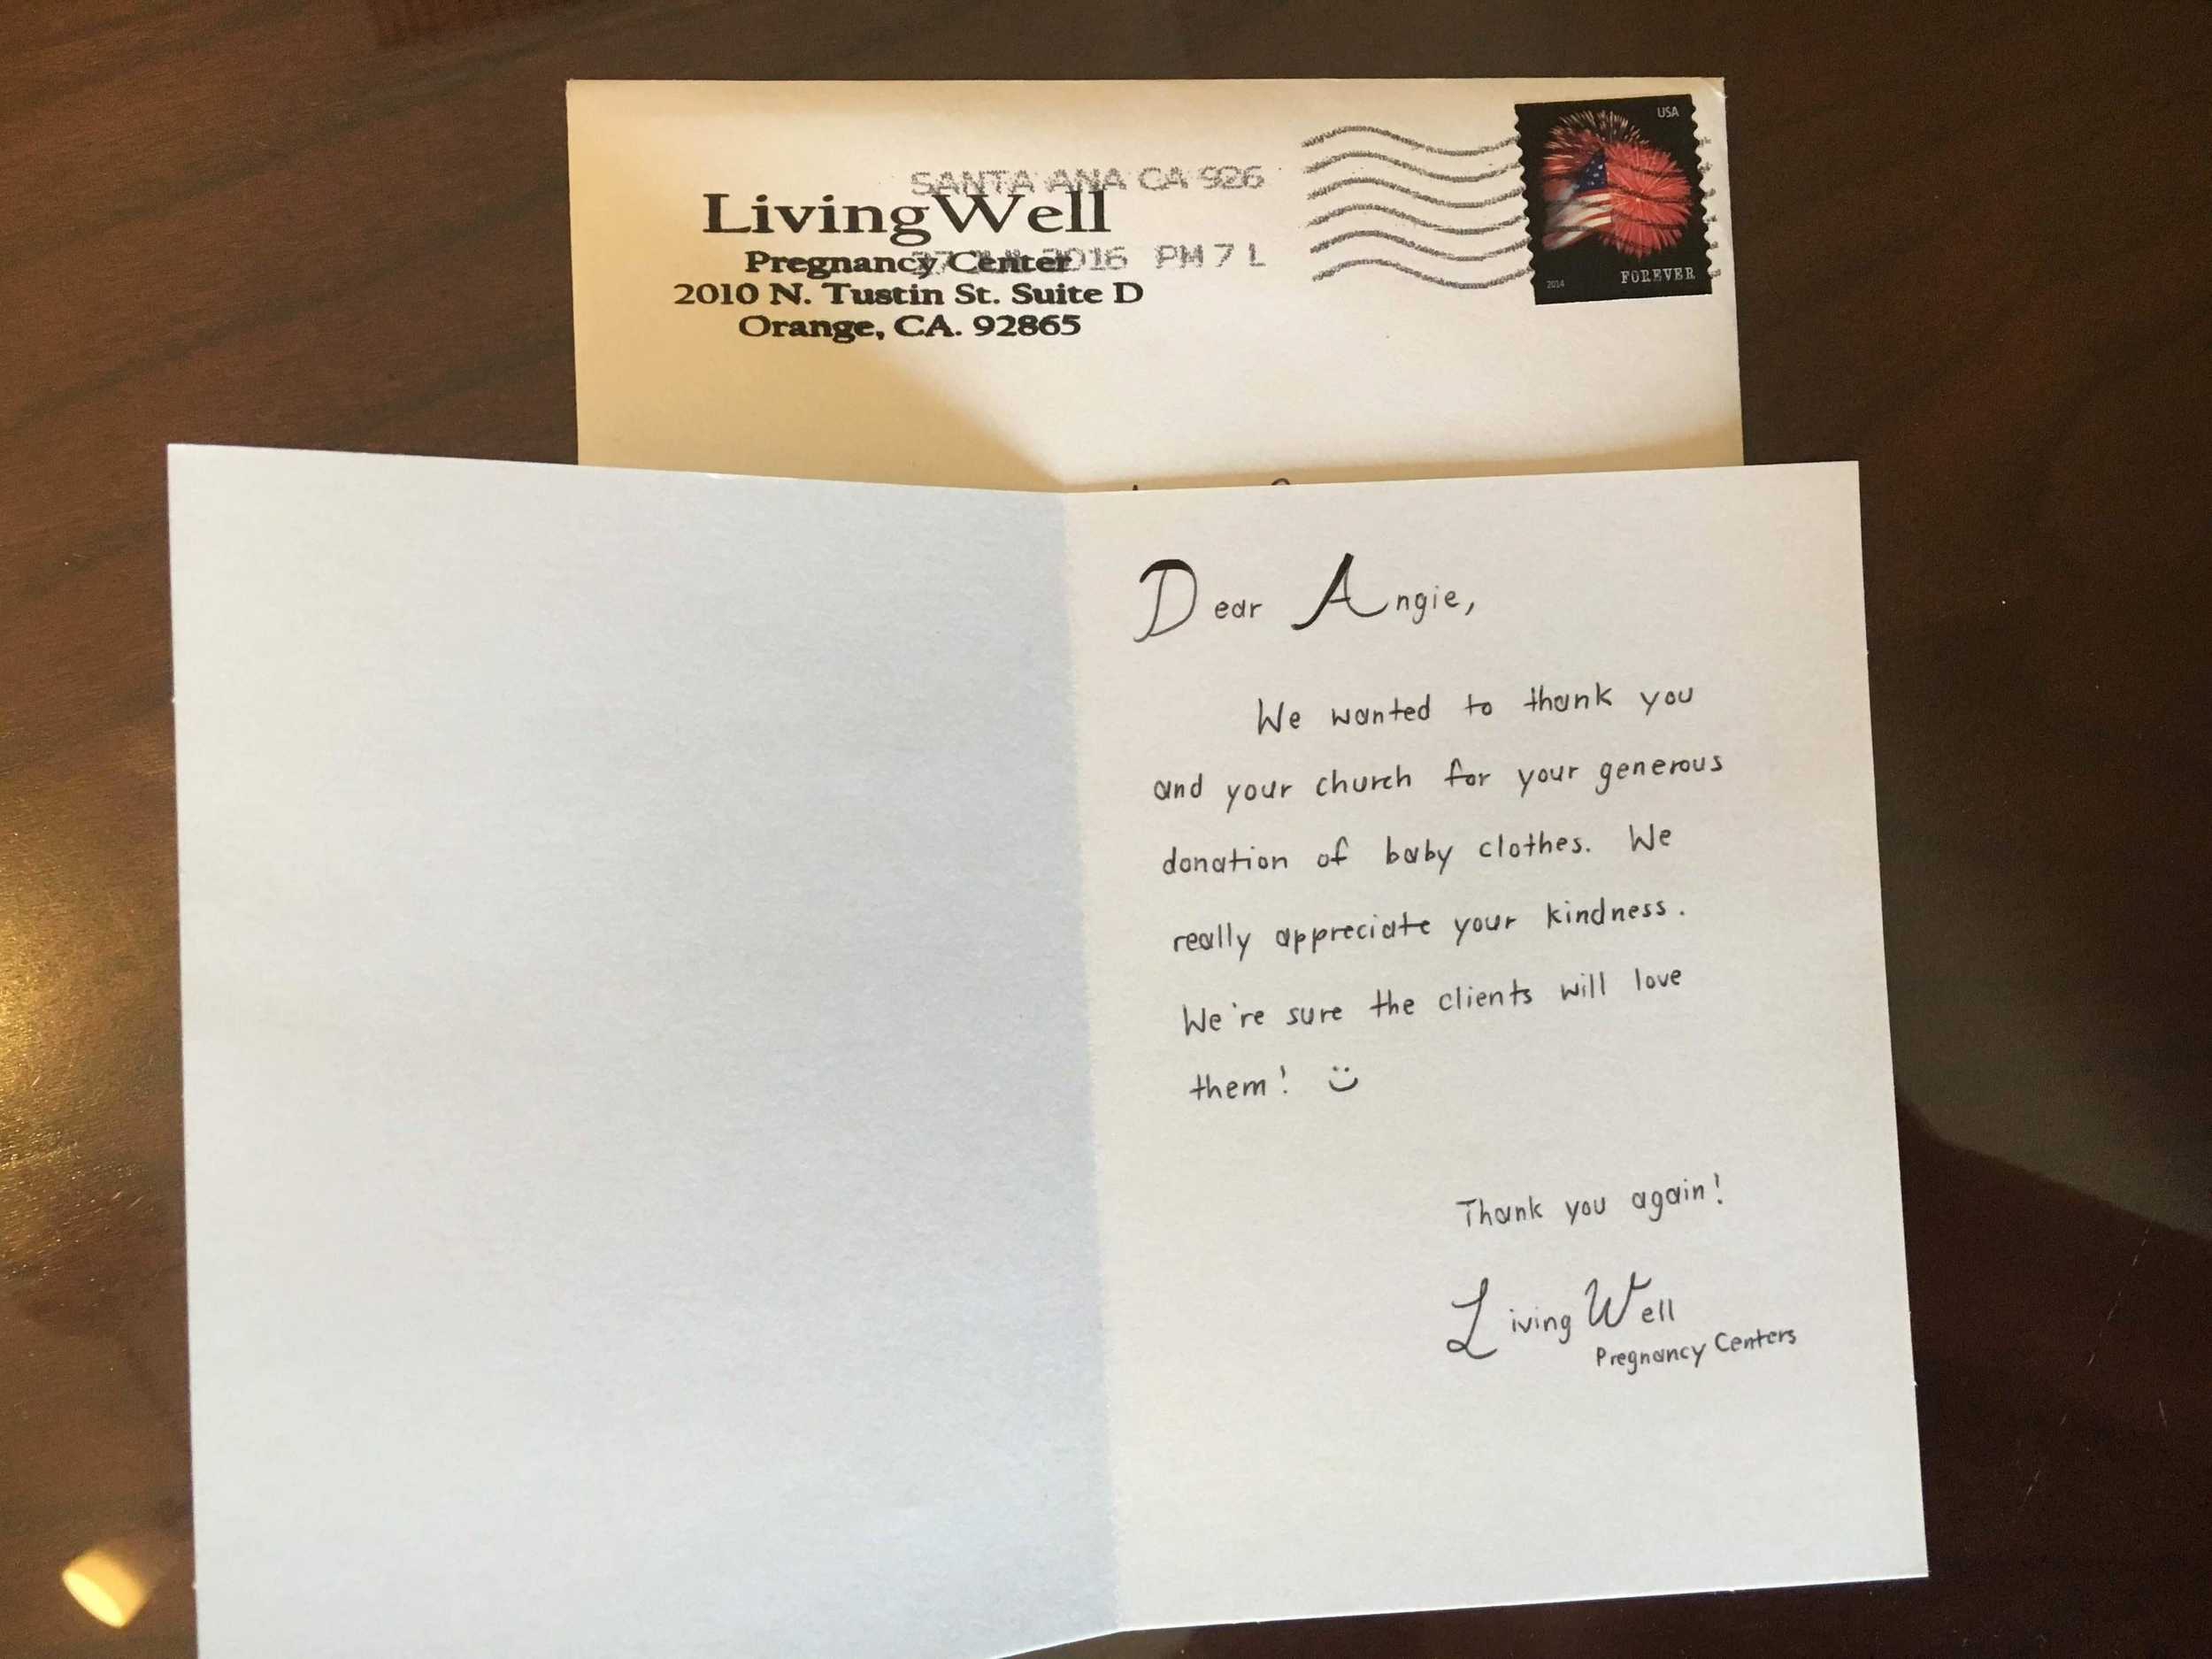 SANTA ANA CA 926
LivingWell
Pregnancy Center
2016 PM 7 L
2010 N. Tustin St. Suite D
Orange, CA. 92865
USA
2014 FOREVER
Dear Angie,
We wanted to thank you
and your church for your generous
donation of baby clothes. We
really appreciate your kindness.
We're sure the clients will love
them! :)
Thank you again!
Living Well
Pregnancy Centers